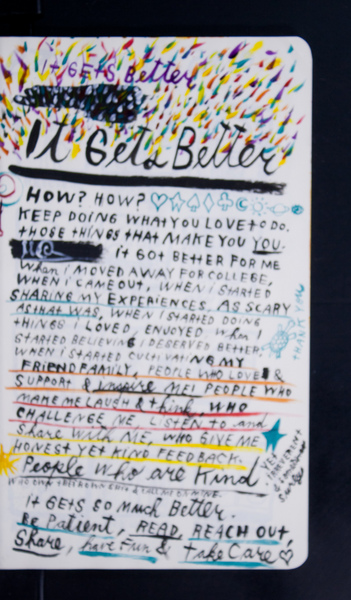 IT GETS Better
It Gets Better
HOW? HOW?
KEEP DOING WHAT YOU LOVE TO DO.
THOSE THINGS THAT MAKE YOU YOU.
IT GOT BETTER FOR ME
When I MOVED AWAY FOR COLLEGE,
WHEN I CAME OUT, WHEN I STARTED
SHARING MY EXPERIENCES, AS SCARY
AS THAT WAS, WHEN I STARTED DOING
THINGS I LOVED, ENJOYED When I
STARTED BELIEVING I DESERVED BETTER,
WHEN I STARTED CULTIVATING MY
FRIEND FAMILY, PEOPLE WHO LOVE &
SUPPORT & inspire ME! PEOPLE WHO
MAKE ME LAUGH & think, WHO
CHALLENGE ME, LISTEN TO and
Share WITH ME, WHO GIVE ME
HONEST YET KIND FEEDBACK.
People who are Kind
IT GETS SO Much Better.
Be Patient, READ, REACH OUT,
Share, have Fun & Take Care
THANK YOU